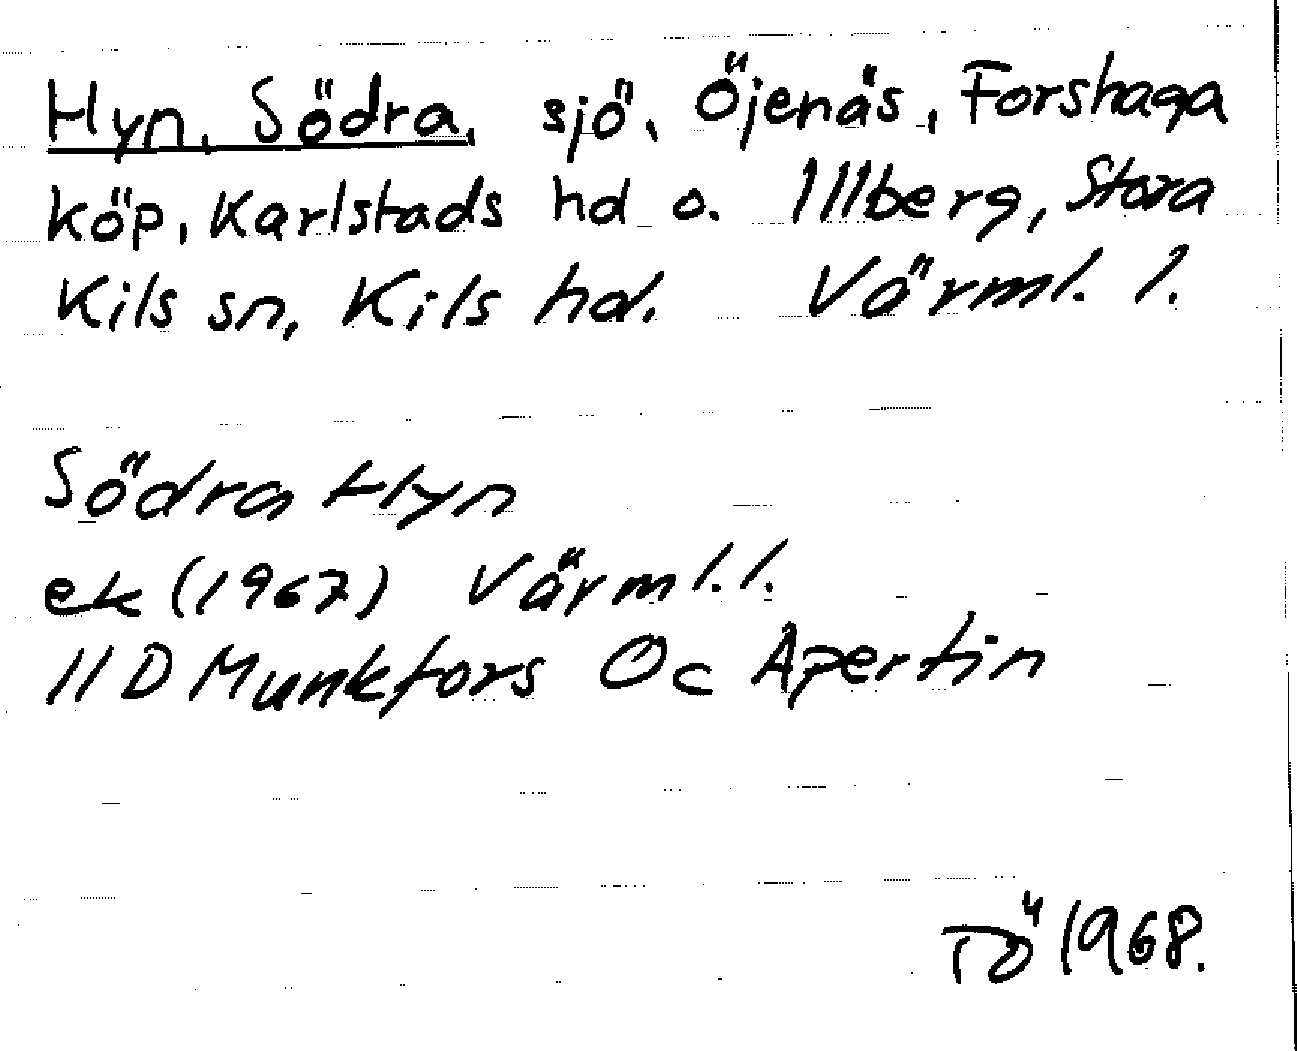 Hyn, Södra, sjö, Öjenäs, Forshaga
köp, Karlstads hd o. Illberg, Stora
Kils sn, Kils hd. Värml. l.
Södra Hyn
ek (1967) Värml. l.
11D Munkfors Oc Apertin
TÖ 1968.